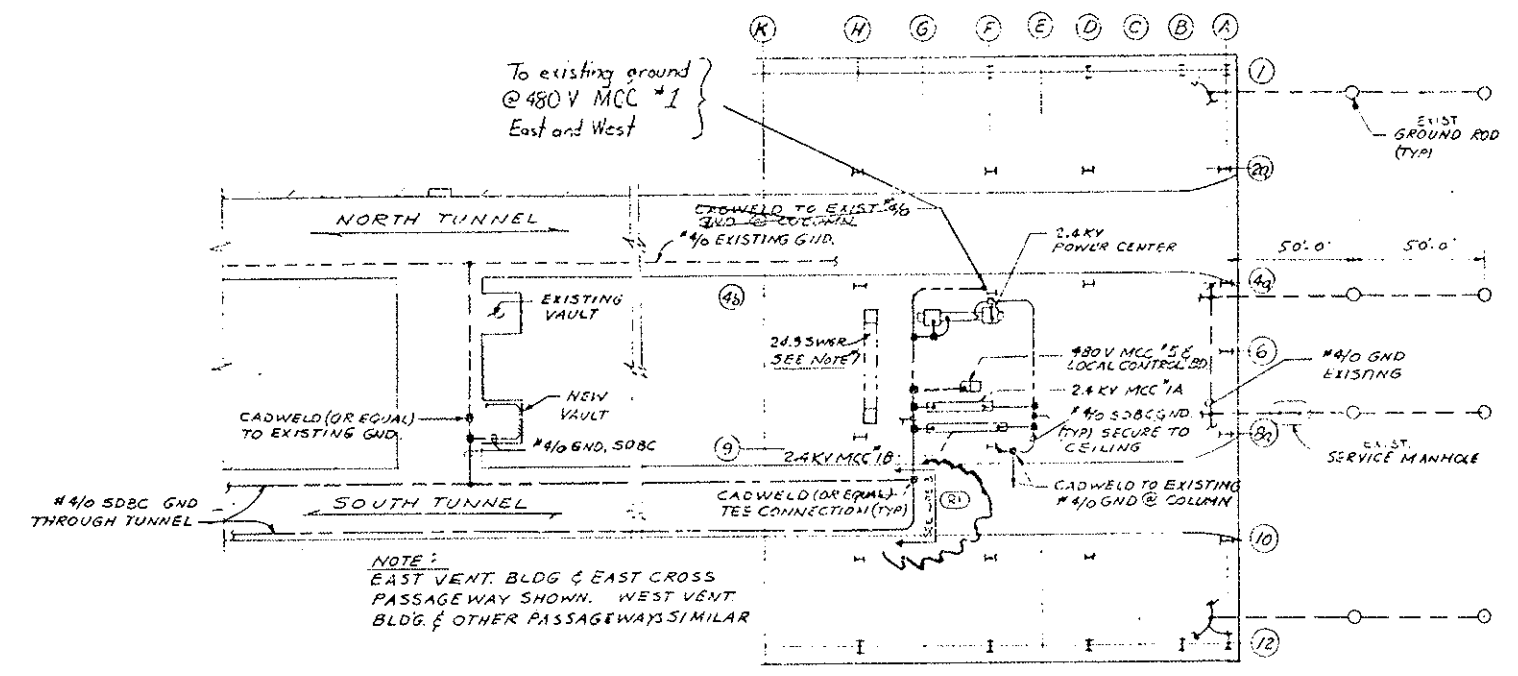 K H G F E D C B A
To existing ground
@ 480 V MCC #1
East and West
1
EXIST
GROUND ROD
(TYP)
2a
NORTH TUNNEL
CADWELD TO EXIST #4/0
GND @ COLUMN
#4/0 EXISTING GND.
2.4 KV
POWER CENTER
50'-0" 50'-0"
4b
4a
EXISTING
VAULT
SWGR
SEE NOTE
480V MCC #5 &
LOCAL CONTROL BD.
6
#4/0 GND
EXISTING
2.4 KV MCC #1A
NEW
VAULT
CADWELD (OR EQUAL)
TO EXISTING GND.
#4/0 SDBC GND.
(TYP) SECURE TO
CEILING
8a
#4/0 GND, SDBC
9
2.4 KV MCC #1B
EXIST.
SERVICE MANHOLE
#4/0 SDBC GND
THROUGH TUNNEL
SOUTH TUNNEL
CADWELD (OR EQUAL)
TEE CONNECTION (TYP)
R1
CADWELD TO EXISTING
#4/0 GND @ COLUMN
10
NOTE:
EAST VENT. BLDG & EAST CROSS
PASSAGEWAY SHOWN. WEST VENT.
BLDG. & OTHER PASSAGEWAYS SIMILAR
12